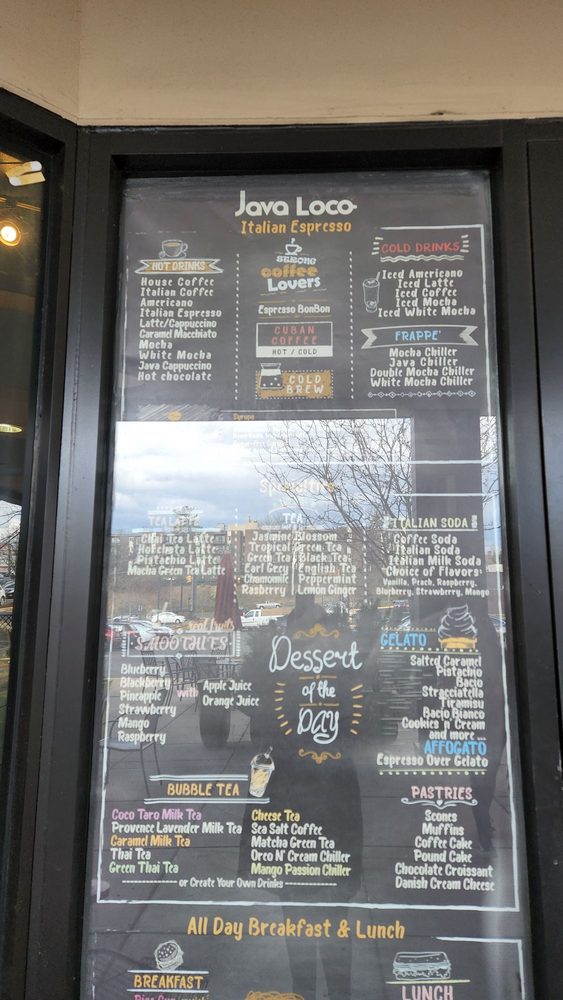 Java Loco
Italian Espresso
HOT DRINKS
House Coffee
Italian Coffee
Americano
Italian Espresso
Latte/Cappuccino
Caramel Macchiato
Mocha
White Mocha
Java Cappuccino
Hot chocolate
STRONG
coffee
Lovers
Espresso BonBon
CUBAN
COFFEE
HOT / COLD
COLD
BREW
COLD DRINKS
Iced Americano
Iced Latte
Iced Coffee
Iced Mocha
Iced White Mocha
FRAPPE'
Mocha Chiller
Java Chiller
Double Mocha Chiller
White Mocha Chiller
Syrups
Specialties
TEA LATTE
Chai Tea Latte
Horchata Latte
Pistachio Latte
Macha Green Tea Latte
TEA
Jasmine Blossom
Tropical Green Tea
Green Tea Black Tea
Earl Grey English Tea
Chamomile Peppermint
Rasberry Lemon Ginger
ITALIAN SODA
Coffee Soda
Italian Soda
Italian Milk Soda
Choice of Flavors:
Vanilla, Peach, Raspberry,
Blueberry, Strawberry, Mango
real fruits
SMOOTHIES
Blueberry
Blackberry
Pineapple
Strawberry
Mango
Raspberry
with
Apple Juice
Orange Juice
Dessert
of the
Day
GELATO
Salted Caramel
Pistachio
Bacio
Stracciatella
Tiramisu
Bacio Bianco
Cookies 'n' Cream
and more ...
AFFOGATO
Espresso Over Gelato
BUBBLE TEA
Coco Taro Milk Tea
Provence Lavender Milk Tea
Caramel Milk Tea
Thai Tea
Green Thai Tea
Cheese Tea
Sea Salt Coffee
Matcha Green Tea
Oreo N' Cream Chiller
Mango Passion Chiller
or Create Your Own Drinks
PASTRIES
Scones
Muffins
Coffee Cake
Pound Cake
Chocolate Croissant
Danish Cream Cheese
All Day Breakfast & Lunch
BREAKFAST
LUNCH